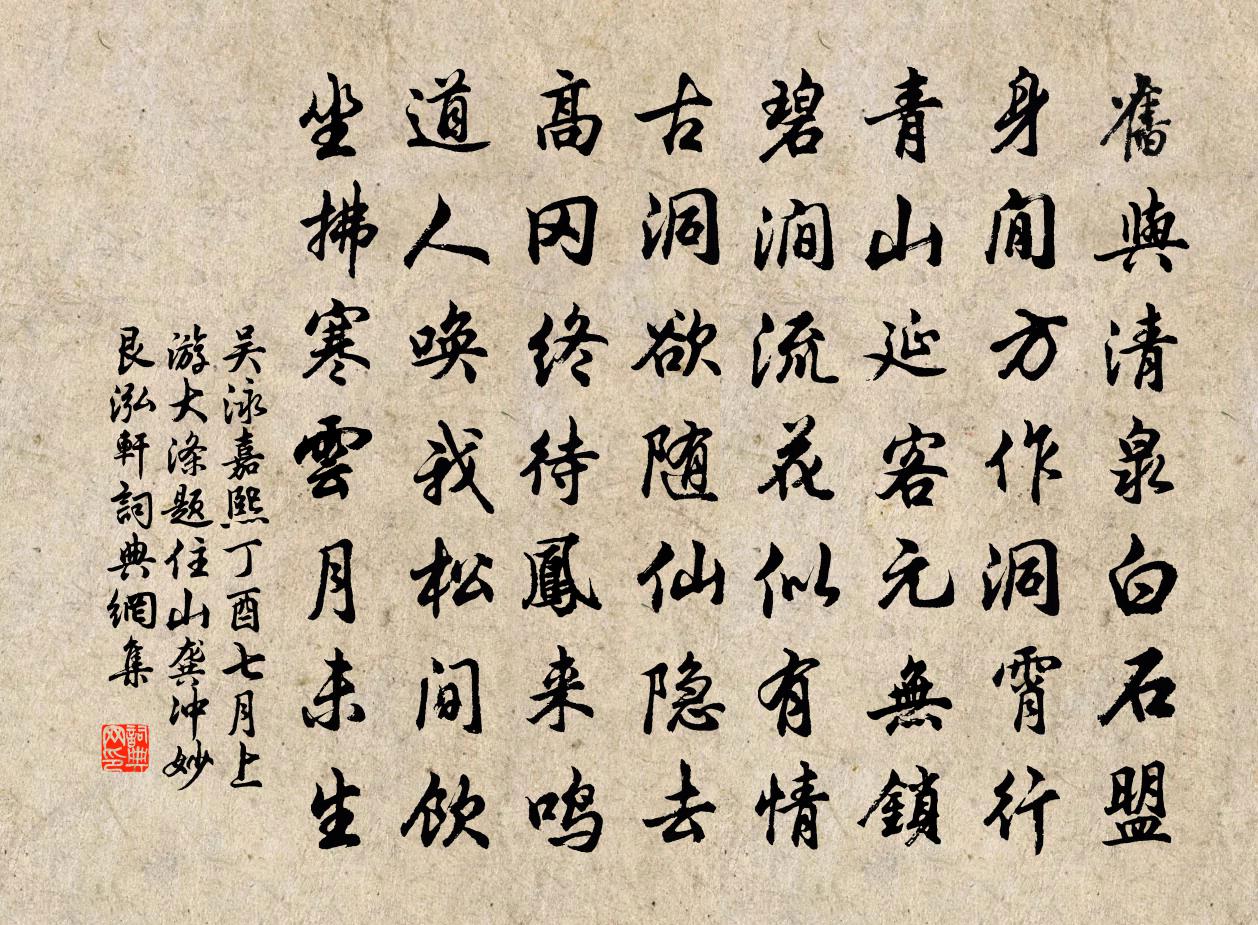 舊與清泉白石盟
身閒方作洞霄行
青山延客元無鎖
碧澗流花似有情
古洞欲随仙隐去
高冈终待鳳来鸣
道人唤我松间饮
坐拂寒雲月未生
吴泳嘉熙丁酉七月上
游大涤题住山龚冲妙
艮泓軒詞典網集
詞典网印